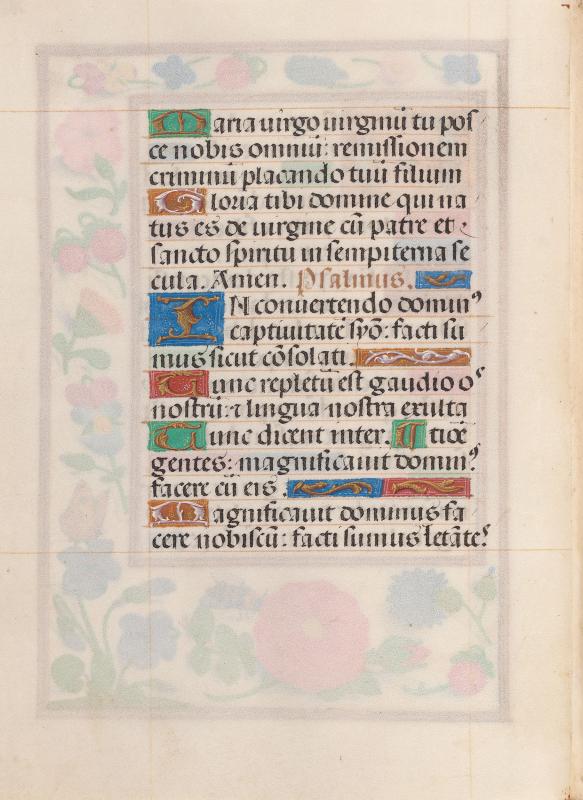 Maria uirgo uirginū tu pos
ce nobis omniū: remissionem
criminū placando tuū filium
Gloria tibi domine qui na
tus es de uirgine cū patre et
sancto spiritu in sempiterna se
cula. Amen. Psalmus.
IN conuertendo dominꝰ
captiuitatē syō: facti su
mus sicut cōsolati.
Tunc repletū est gaudio os
nostrū: ⁊ lingua nostra exulta
Tunc dicent inter. tiōē
gentes: magnificauit dominꝰ
facere cū eis.
Magnificauit dominus fa
cere nobiscū: facti sumus letātes